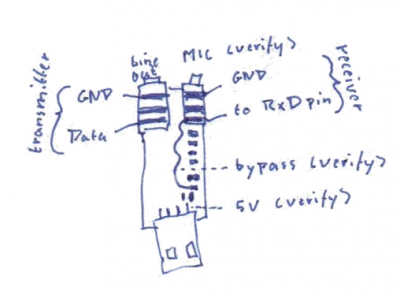 Line out
MIC <verify>
transmitter
GND
Data
GND
to RxD pin
receiver
bypass <verify>
5V <verify>